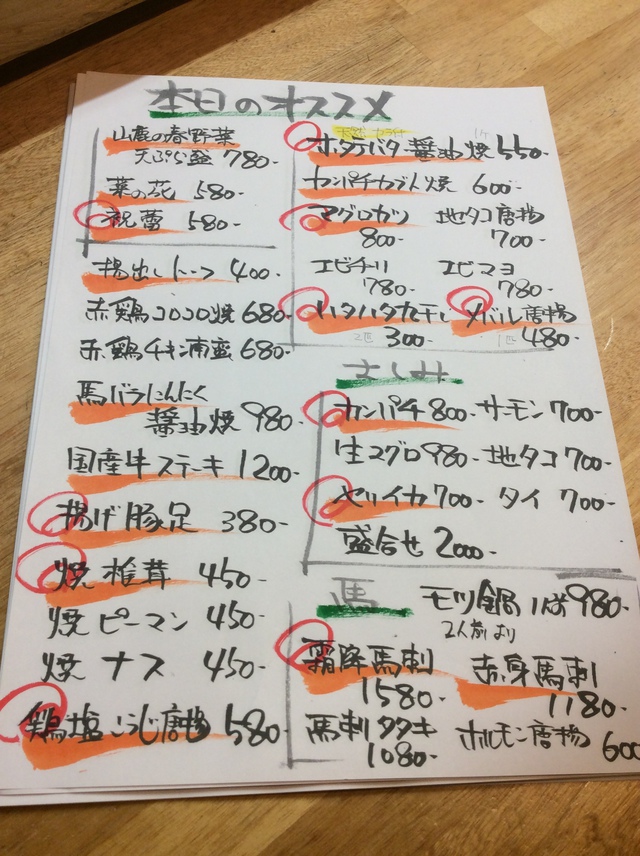 本日のオススメ
山鹿の春野菜
天ぷら盛 780-
菜の花 580-
祝蕾 580-
揚出しトーフ 400-
赤鶏コロコロ焼 680-
赤鶏チキン南蛮 680-
馬バラにんにく
醤油焼 980-
国産牛ステーキ 1200-
揚げ豚足 380-
焼椎茸 450-
焼ピーマン 450-
焼ナス 450-
鶏塩こうじ唐揚 580-
ホタテバター醤油焼 550-
カンパチカブト焼 600-
マグロカツ 地タコ唐揚
800- 700-
エビチリ エビマヨ
780- 780-
ハタハタ丸干し メバル唐揚
2匹 300- 1匹 480-
さしみ
カンパチ 800- サーモン 700-
生マグロ 980- 地タコ 700-
ヤリイカ 700- タイ 700-
盛合せ 2000-
馬 モツ鍋 1人前 980-
2人前より
霜降馬刺 赤身馬刺
1580- 1180-
馬刺タタキ ホルモン唐揚 600
1080-